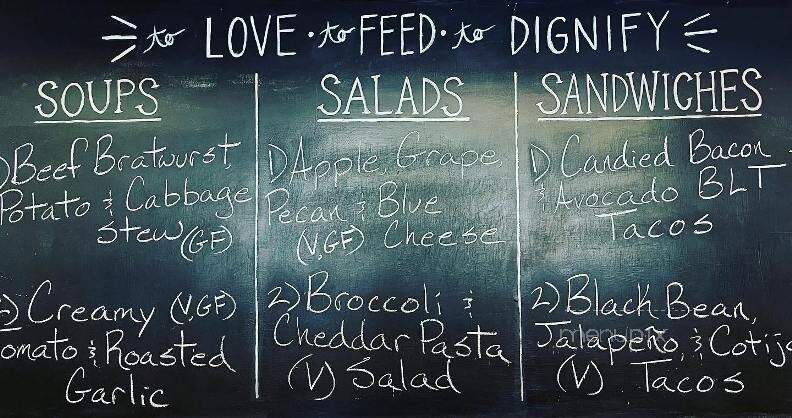 to LOVE · to FEED · to DIGNIFY
SOUPS
1) Beef Bratwurst,
Potato & Cabbage
Stew (GF)
2) Creamy (V,GF)
omato & Roasted
Garlic
SALADS
1) Apple, Grape,
Pecan & Blue
(V,GF) Cheese
2) Broccoli &
Cheddar Pasta
(V) Salad
SANDWICHES
1) Candied Bacon
& Avocado BLT
Tacos
2) Black Bean,
Jalapeño, & Cotija
(V) Tacos
menupix